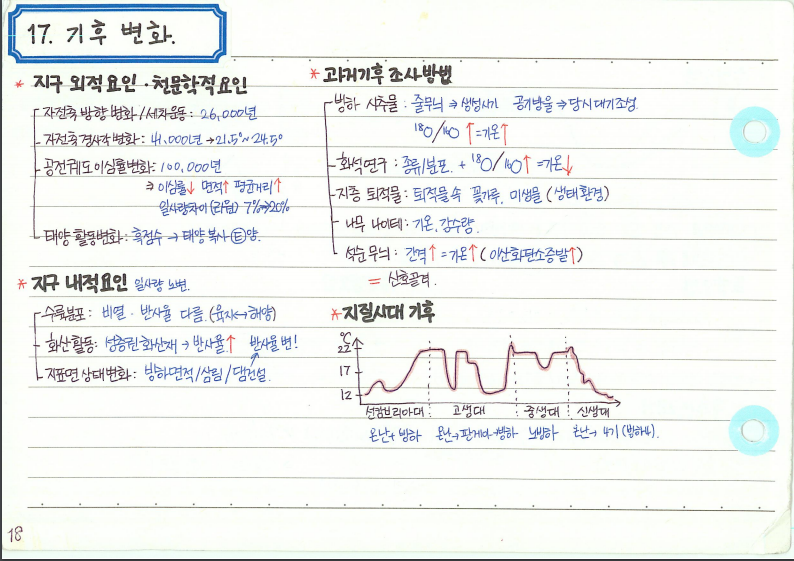 17. 기후 변화.
* 지구 외적요인·천문학적요인
자전축 방향 변화/세차운동: 26,000년
자전축 경사각 변화: 41,000년 → 21.5°~24.5°
공전궤도 이심률변화: 100,000년
⇒ 이심률↓ 면적↑ 평균거리↑
일사량차이 (근원) 7%→20%
태양 활동변화: 흑점수 → 태양 복사 Ⓔ양.
* 지구 내적요인 일사량 노변.
수륙분포: 비열·반사율 다름. (육지↔해양)
화산활동: 성층권화산재 → 반사율↑ 반사율 변!
지표면 상태변화: 빙하면적/삼림/댐건설.
* 과거기후 조사방법
빙하 시추물: 줄무늬 ⇒ 생성시기 공기방울 ⇒ 당시대기조성
¹⁸O/¹⁶O ↑=기온↑
화석연구: 종류/분포. + ¹⁸O/¹⁶O↑ =기온↓
지층 퇴적물: 퇴적물속 꽃가루, 미생물 (생태환경)
나무 나이테: 기온, 강수량.
석순무늬: 간격↑=기온↑(이산화탄소증발↑)
= 산호골격.
* 지질시대 기후
℃
22
17
12
선캄브리아대 고생대 중생대 신생대
온난+빙하 온난→판게아→빙하 노빙하 온난→4기(빙하4).
18